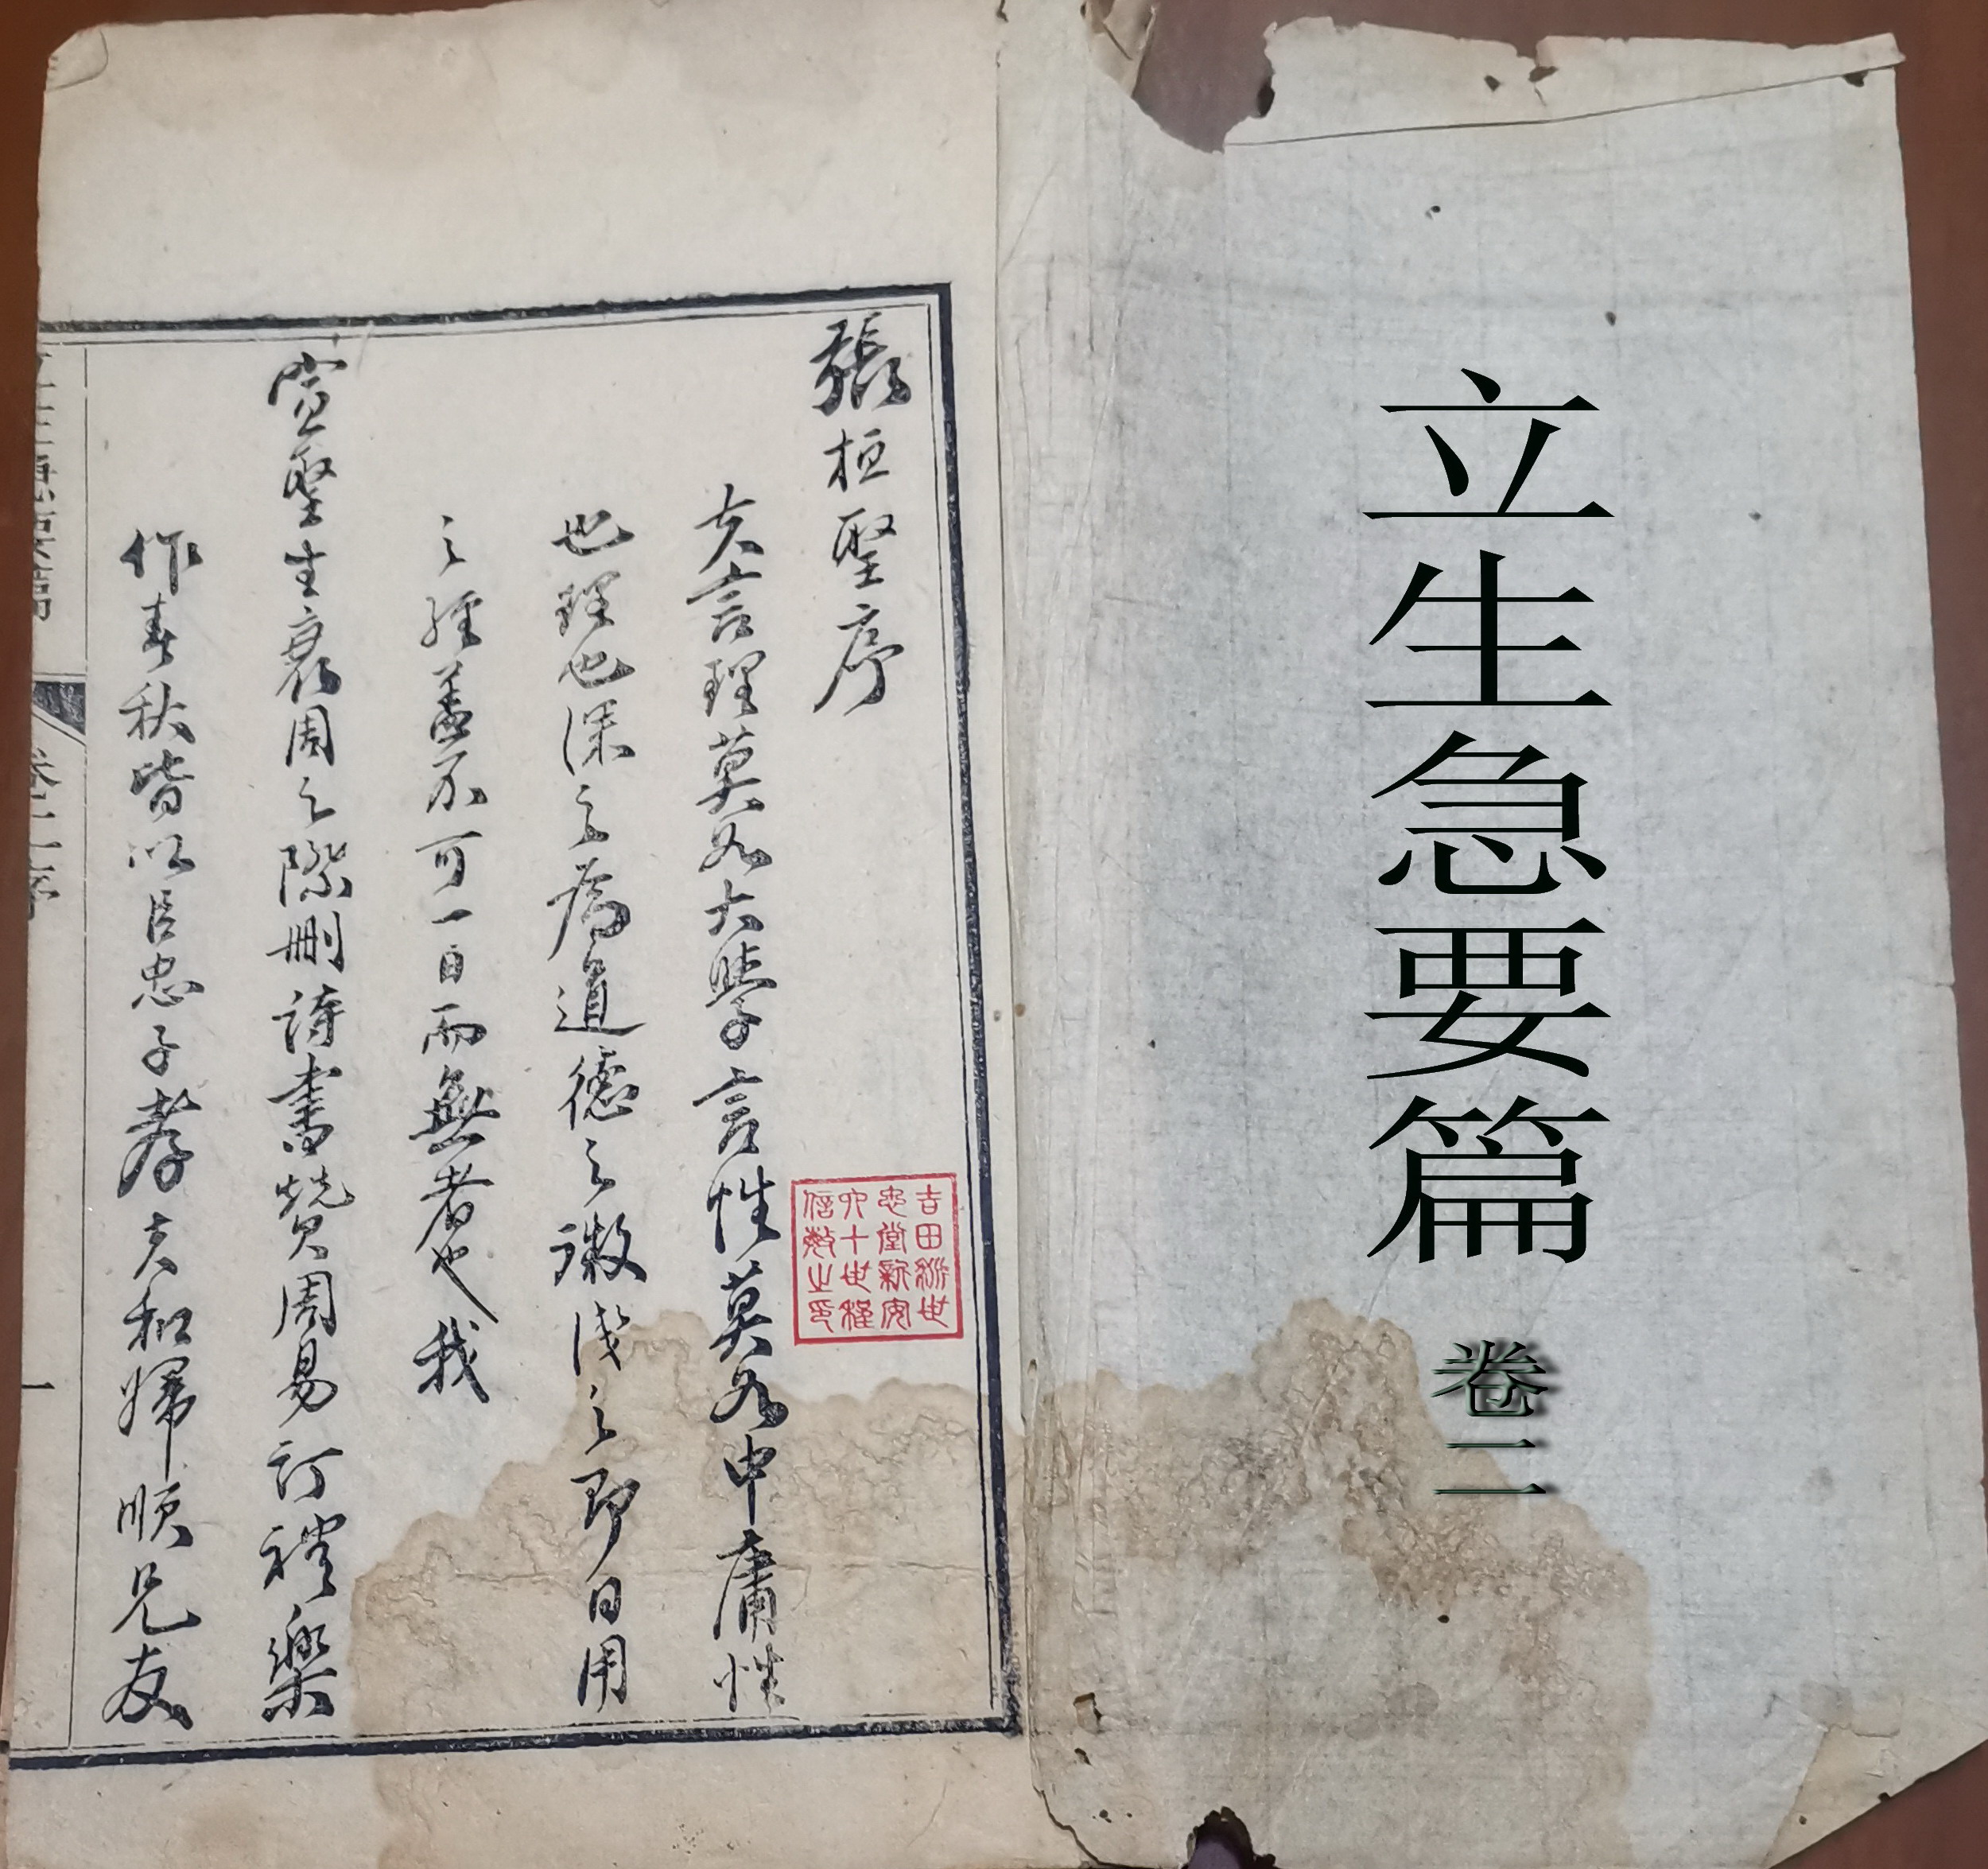 立生急要篇
卷二
張桓聖序
夫言理莫如大學言性莫如中庸性
也理也深之為道德之微淺之即日用
之經蓋不可一日而無者也我
宣聖生衰周之際刪詩書贊周易訂禮樂
作春秋皆以臣忠子孝夫和婦順兄友
吉田衍世
忠堂新安
六十世程
信敏之印
立生急要篇
卷二序
一